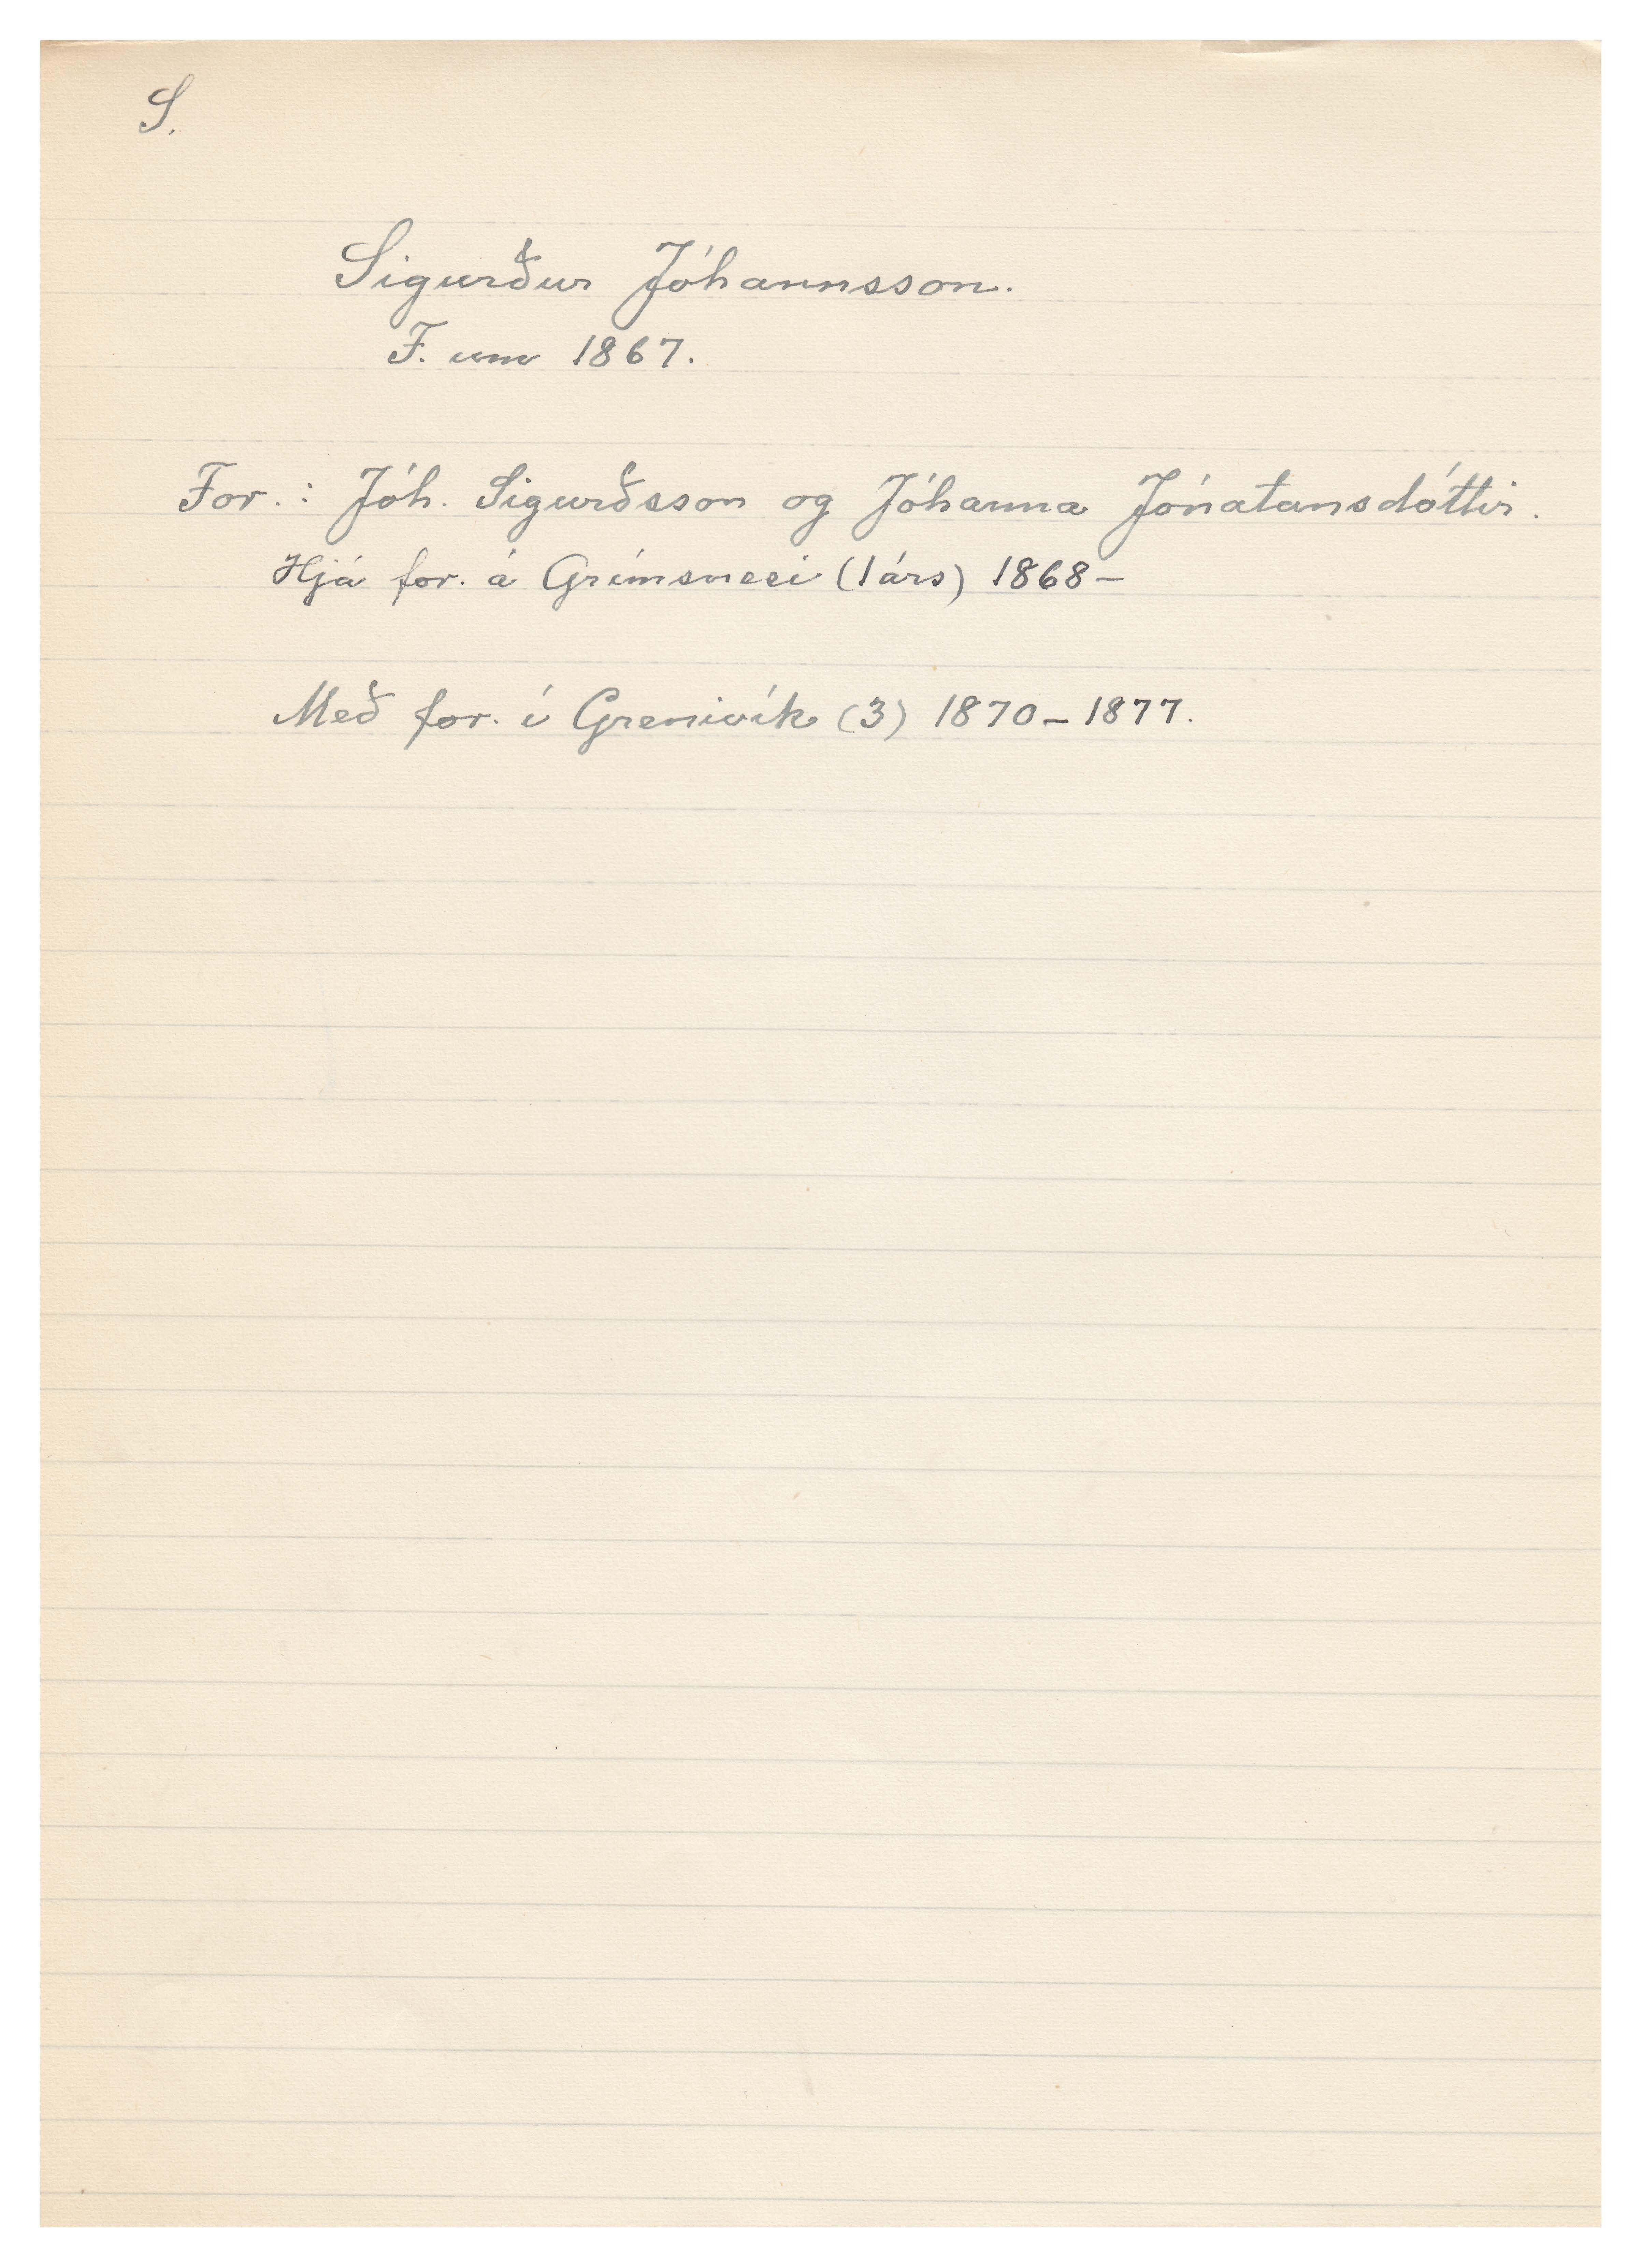 S.
Sigurður Jóhannsson.
F. um 1867.
For.: Jóh. Sigurðsson og Jóhanna Jónatansdóttir.
Hjá for. á Grímsnesi (1 árs) 1868–
Með for. í Grenivík (3) 1870–1877.